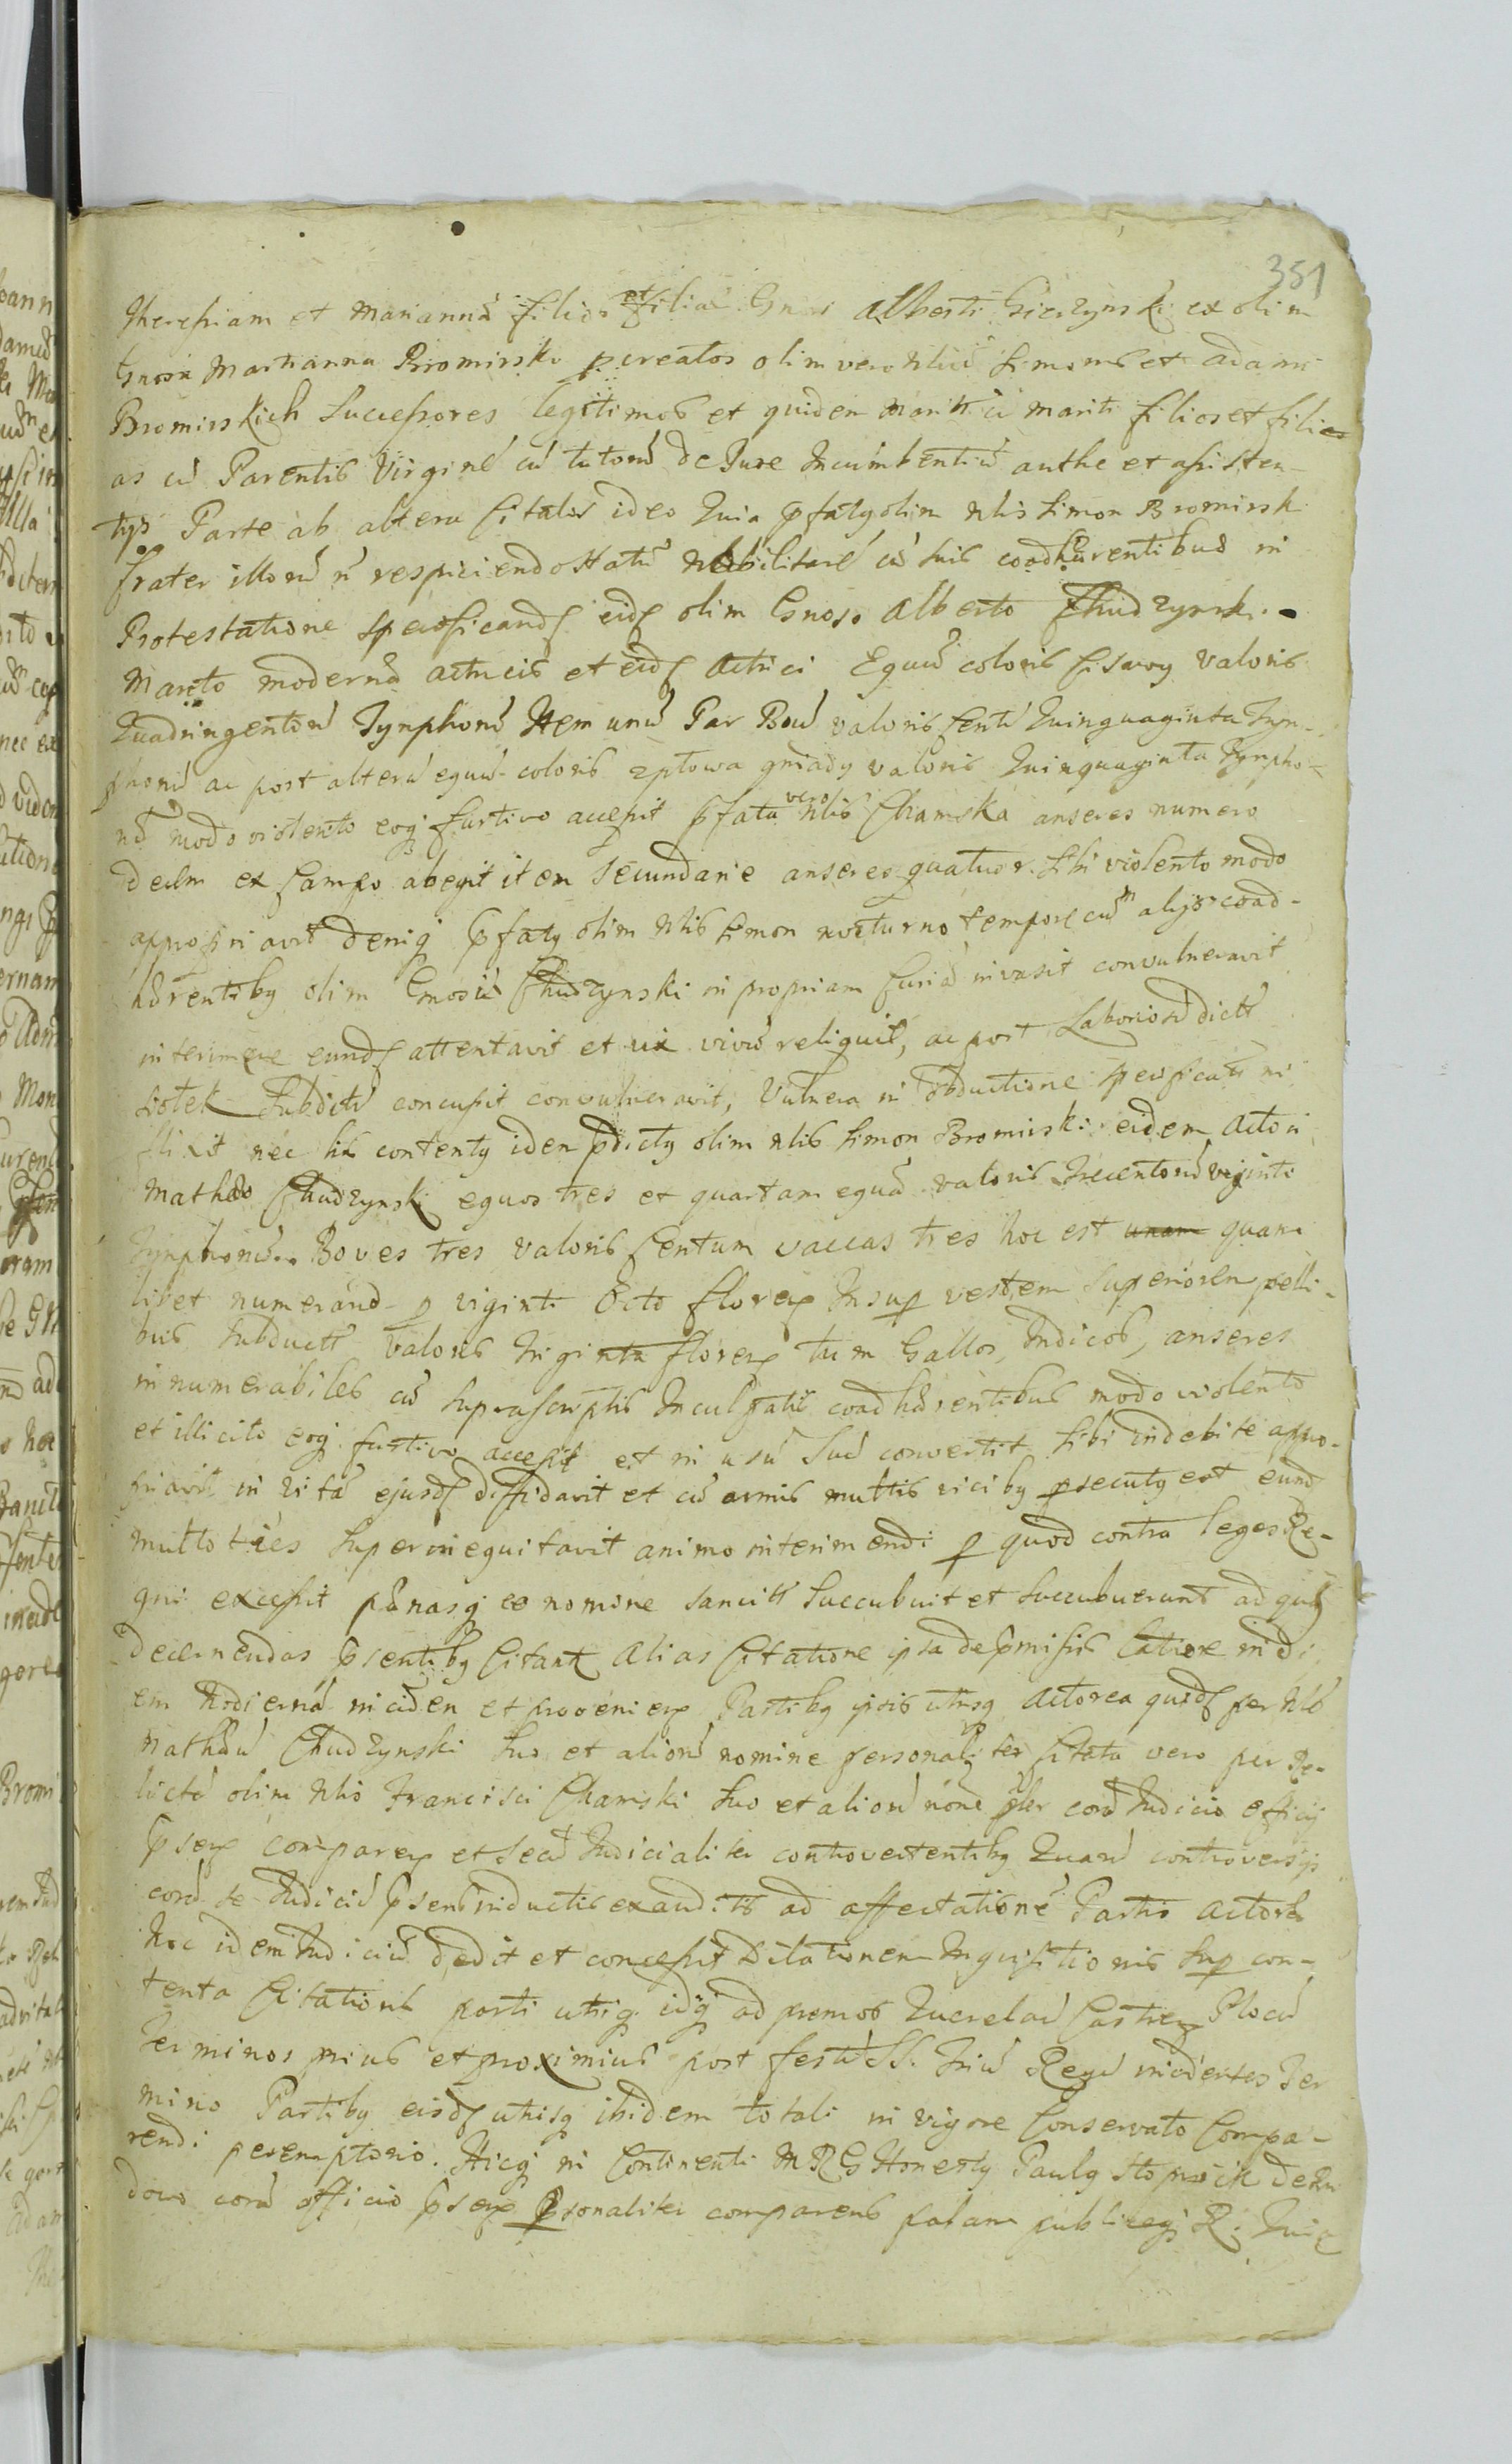 351
Theressiam et Mariannā filios et filias Gnosi Alberti Gierzynski ex olim
Gnosa Marianna Bromirska pcreatos olim vero Nliū Simonis et Adami
Bromirskich Successores legitimos et quidem Marit cū Mariti filios et filias
as cū Parentis Virginē cū tutorū de Jure Incumbentiū authe et assisten-
tys Parte ab altera Citatos ideo Quia pfatg olim Nlis Simon Bromirski
frater illorū ñ respiciendo Statū Nobilitarē cū suis coadhærentibus in
Protestatione specificand eid olim Gnoso Alberto Chudzynski
Marito modernæ Actricis et eid Actrici Equū coloris Cisawy valoris
Quadringentorū Tynphonū Item unū Par Boū valoris Centū Quinquaginta Tyn-
phonū ac post alterū equū coloris zplowa gniady valoris Quinquaginta Tynpho-
nū modo violento eoq furtivo accepit pfata vero Nlis Chamska anseres numero
decem ex Campo abegit item secundarie anseres quatuor Sibi violento modo
appropriavit deniq pfatg olim Nlis Simon nocturno tempore cum alijs coad-
hærentibg olim Gnosū Chudzynski in propriam Curiā invasit convulneravit
interimere eund attentavit et vix vivū reliquit, ac post Laboriosū dictū
Siotek Subditū concussit convulneravit, Vulnera in obductione specificata in
flixit nec his contentg idem pdictg olim Nlis Simon Bromirski eidem Actori
Mathæo Chudzynski equos tres et quartam equā valoris Trecentorū viginti
Tynphonū. Boves tres valoris Centum vaccas tres hoc est unam quam
libet numerand p viginti Octo floren Insup vestem superiorem pelli-
bus subductā valoris Triginta floren tum Gallos, Indicos, anseres
innumerabiles cū suprascriptis Inculpatis coadhærentibus modo violento
et illicito eoq furtivo accepit et in usū Suū convertit Sibi indebite appro-
priavit in vitā ejusd diffidavit et cū armis multis vicibg psecutg est eund
multoties superinequitavit animo interimendi p quod contra leges Re-
gni excessit pænasq eo nomine sancitas succubuit et succubuerunt ad quas
decernendas psentibg Citant Alias Citatione ipsa depmissis latiore in di
em hodiernā inciden et provenien Partibg ipsis utrisq Actorea quid per Nlē
Mathæū Chudzynski suo et aliorū nomine personaliter Citata vero per Re-
lictā olim Nlis Francisci Chamski suo et aliorū nōne pler corā Judicio officij
psen comparen et secū Judicialiter controvertentibg Quarū controversijs
corā se Judiciū psens inductis exauditis ad affectationē Partis Actoreæ
hoc idem Judiciū dedit et concessit Dilationem Inquisitionis sup con-
tenta Citationis parti utriq idq ad primos Querelarū Castren Plocen
Terminos prius et proximius post festū SS. Triū Regū inciderites Ter
mino Partibg eisd utrisq ibidem totali in vigore Conservato Compa-
rendi peremptorio. Hicq in Continenti MRG Honestg Paulg Stopnicki de
dovo corā officio psen psonaliter comparens palam publiceq R. Quia